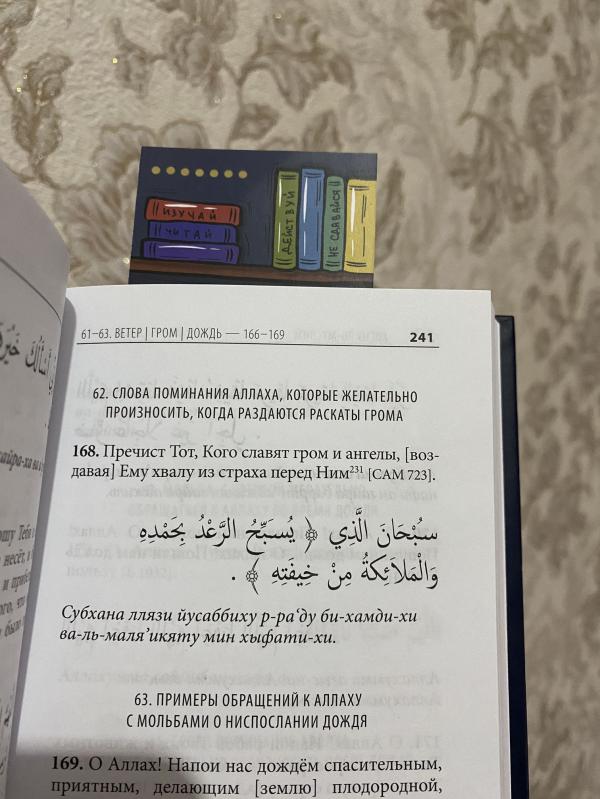 ИЗУЧАЙ
ЧИТАЙ
ДЕЙСТВУЙ
НЕ СДАВАЙСЯ И
61–63. ВЕТЕР | ГРОМ | ДОЖДЬ — 166–169
241
62. СЛОВА ПОМИНАНИЯ АЛЛАХА, КОТОРЫЕ ЖЕЛАТЕЛЬНО
ПРОИЗНОСИТЬ, КОГДА РАЗДАЮТСЯ РАСКАТЫ ГРОМА
168. Пречист Тот, Кого славят гром и ангелы, [воз-
давая] Ему хвалу из страха перед Ним231 [САМ 723].
سُبْحَانَ الَّذِي ﴿ يُسَبِّحُ الرَّعْدُ بِحَمْدِهِ
وَالْمَلَائِكَةُ مِنْ خِيفَتِهِ ﴾ .
Субхана ллязи йусаббиху р-ра‘ду би-хамди-хи
ва-ль-маля’икяту мин хыфати-хи.
63. ПРИМЕРЫ ОБРАЩЕНИЙ К АЛЛАХУ
С МОЛЬБАМИ О НИСПОСЛАНИИ ДОЖДЯ
169. О Аллах! Напои нас дождём спасительным,
приятным, делающим [землю] плодородной,